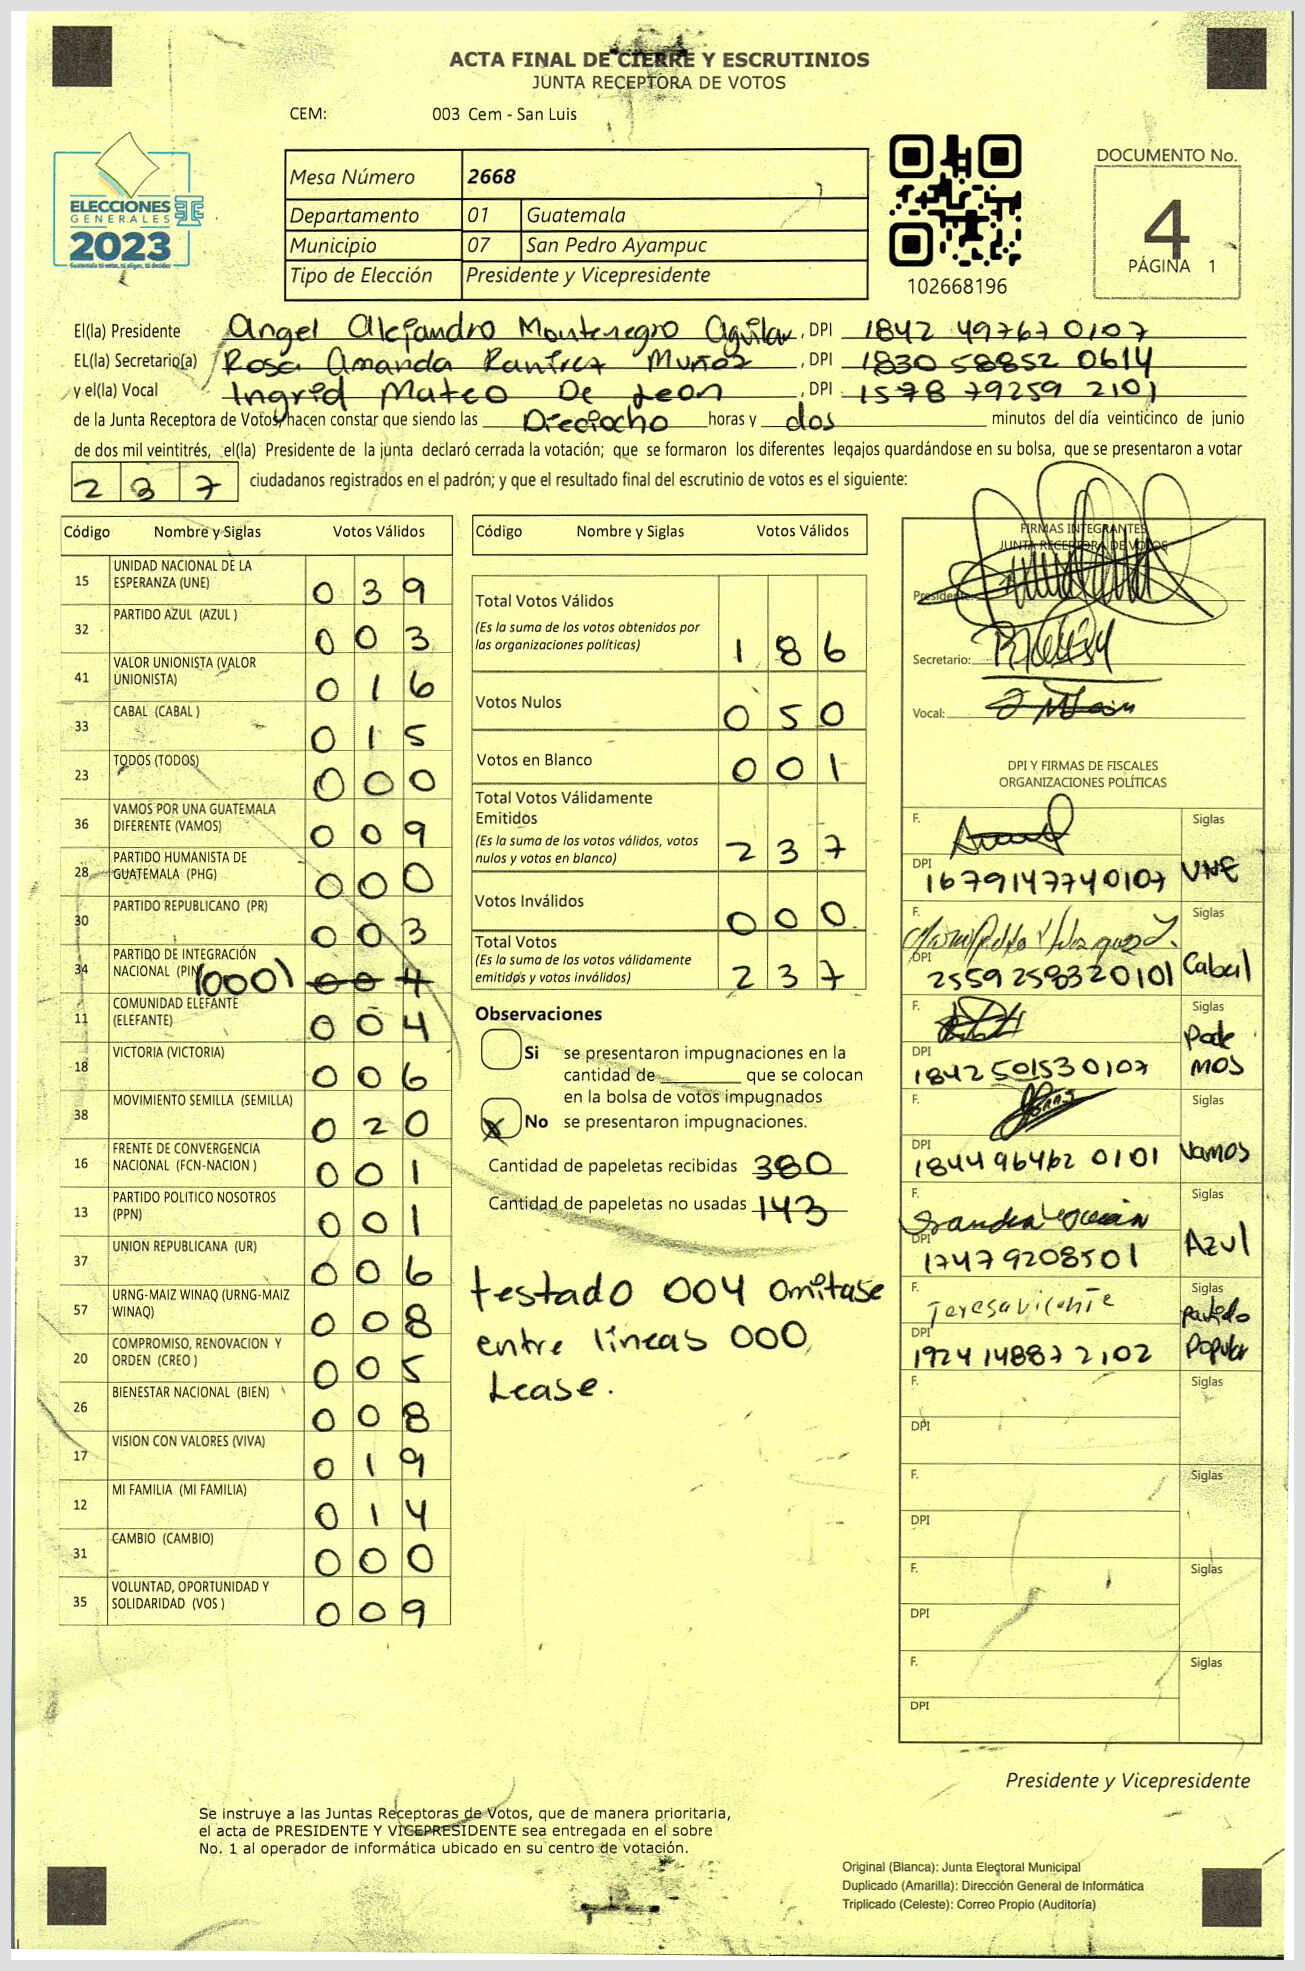 ACTA FINAL DE CIERRE Y ESCRUTINIOS
JUNTA RECEPTORA DE VOTOS
CEM: 003 Cem - San Luis
ELECCIONES
GENERALES
2023
Mesa Número 2668
Departamento 01 Guatemala
Municipio 07 San Pedro Ayampuc
Tipo de Elección Presidente y Vicepresidente
102668196
DOCUMENTO No.
4
PÁGINA 1
El(la) Presidente Angel Alejandro Montenegro Aguilar, DPI 1842 49767 0107
EL(la) Secretario(a) Rosa Amanda Ramírez Muñoz, DPI 1830 58852 0614
y el(la) Vocal Ingrid Mateo De Leon, DPI 1578 79259 2101
de la Junta Receptora de Votos, hacen constar que siendo las Dieciocho horas y dos minutos del día veinticinco de junio
de dos mil veintitrés, el(la) Presidente de la junta declaró cerrada la votación; que se formaron los diferentes legajos guardándose en su bolsa, que se presentaron a votar
237 ciudadanos registrados en el padrón; y que el resultado final del escrutinio de votos es el siguiente:
Código Nombre y Siglas Votos Válidos
15 UNIDAD NACIONAL DE LA ESPERANZA (UNE) 039
32 PARTIDO AZUL (AZUL ) 003
41 VALOR UNIONISTA (VALOR UNIONISTA) 016
33 CABAL (CABAL ) 015
23 TODOS (TODOS) 000
36 VAMOS POR UNA GUATEMALA DIFERENTE (VAMOS) 009
28 PARTIDO HUMANISTA DE GUATEMALA (PHG) 000
30 PARTIDO REPUBLICANO (PR) 003
34 PARTIDO DE INTEGRACIÓN NACIONAL (PIN) (000) 004
11 COMUNIDAD ELEFANTE (ELEFANTE) 004
18 VICTORIA (VICTORIA) 006
38 MOVIMIENTO SEMILLA (SEMILLA) 020
16 FRENTE DE CONVERGENCIA NACIONAL (FCN-NACION ) 001
13 PARTIDO POLITICO NOSOTROS (PPN) 001
37 UNION REPUBLICANA (UR) 006
57 URNG-MAIZ WINAQ (URNG-MAIZ WINAQ) 008
20 COMPROMISO, RENOVACION Y ORDEN (CREO ) 005
26 BIENESTAR NACIONAL (BIEN) 008
17 VISION CON VALORES (VIVA) 019
12 MI FAMILIA (MI FAMILIA) 014
31 CAMBIO (CAMBIO) 000
35 VOLUNTAD, OPORTUNIDAD Y SOLIDARIDAD (VOS ) 009
Código Nombre y Siglas Votos Válidos
Total Votos Válidos
(Es la suma de los votos obtenidos por
las organizaciones políticas) 186
Votos Nulos 050
Votos en Blanco 001
Total Votos Válidamente
Emitidos
(Es la suma de los votos válidos, votos
nulos y votos en blanco) 237
Votos Inválidos 000
Total Votos
(Es la suma de los votos válidamente
emitidos y votos inválidos) 237
Observaciones
Si se presentaron impugnaciones en la
cantidad de ________ que se colocan
en la bolsa de votos impugnados
X No se presentaron impugnaciones.
Cantidad de papeletas recibidas 380
Cantidad de papeletas no usadas 143
testado 004 omitase
entre líneas 000,
Lease.
FIRMAS INTEGRANTES
JUNTA RECEPTORA DE VOTOS
Presidente:
Secretario:
Vocal:
DPI Y FIRMAS DE FISCALES
ORGANIZACIONES POLÍTICAS
F. Siglas
DPI 1679147740107 UNE
F. Siglas
DPI 2559258320101 Cabal
F. Siglas
DPI 1842501530107 Podemos
F. Siglas
DPI 184496462 0101 Vamos
F. Siglas
DPI 17479208501 Azul
F. Teresa Vicente Siglas
DPI 1924 14887 2102 Partido Popular
F. Siglas
DPI
F. Siglas
DPI
F. Siglas
DPI
F. Siglas
DPI
Presidente y Vicepresidente
Se instruye a las Juntas Receptoras de Votos, que de manera prioritaria,
el acta de PRESIDENTE Y VICEPRESIDENTE sea entregada en el sobre
No. 1 al operador de informática ubicado en su centro de votación.
Original (Blanca): Junta Electoral Municipal
Duplicado (Amarilla): Dirección General de Informática
Triplicado (Celeste): Correo Propio (Auditoría)